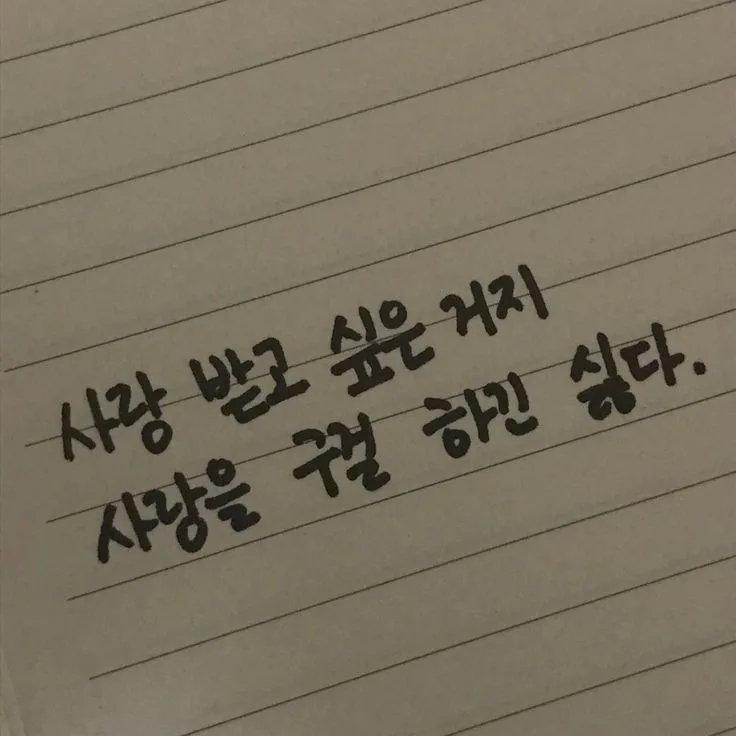 사랑 받고 싶은 거지
사랑을 구걸 하긴 싫다.